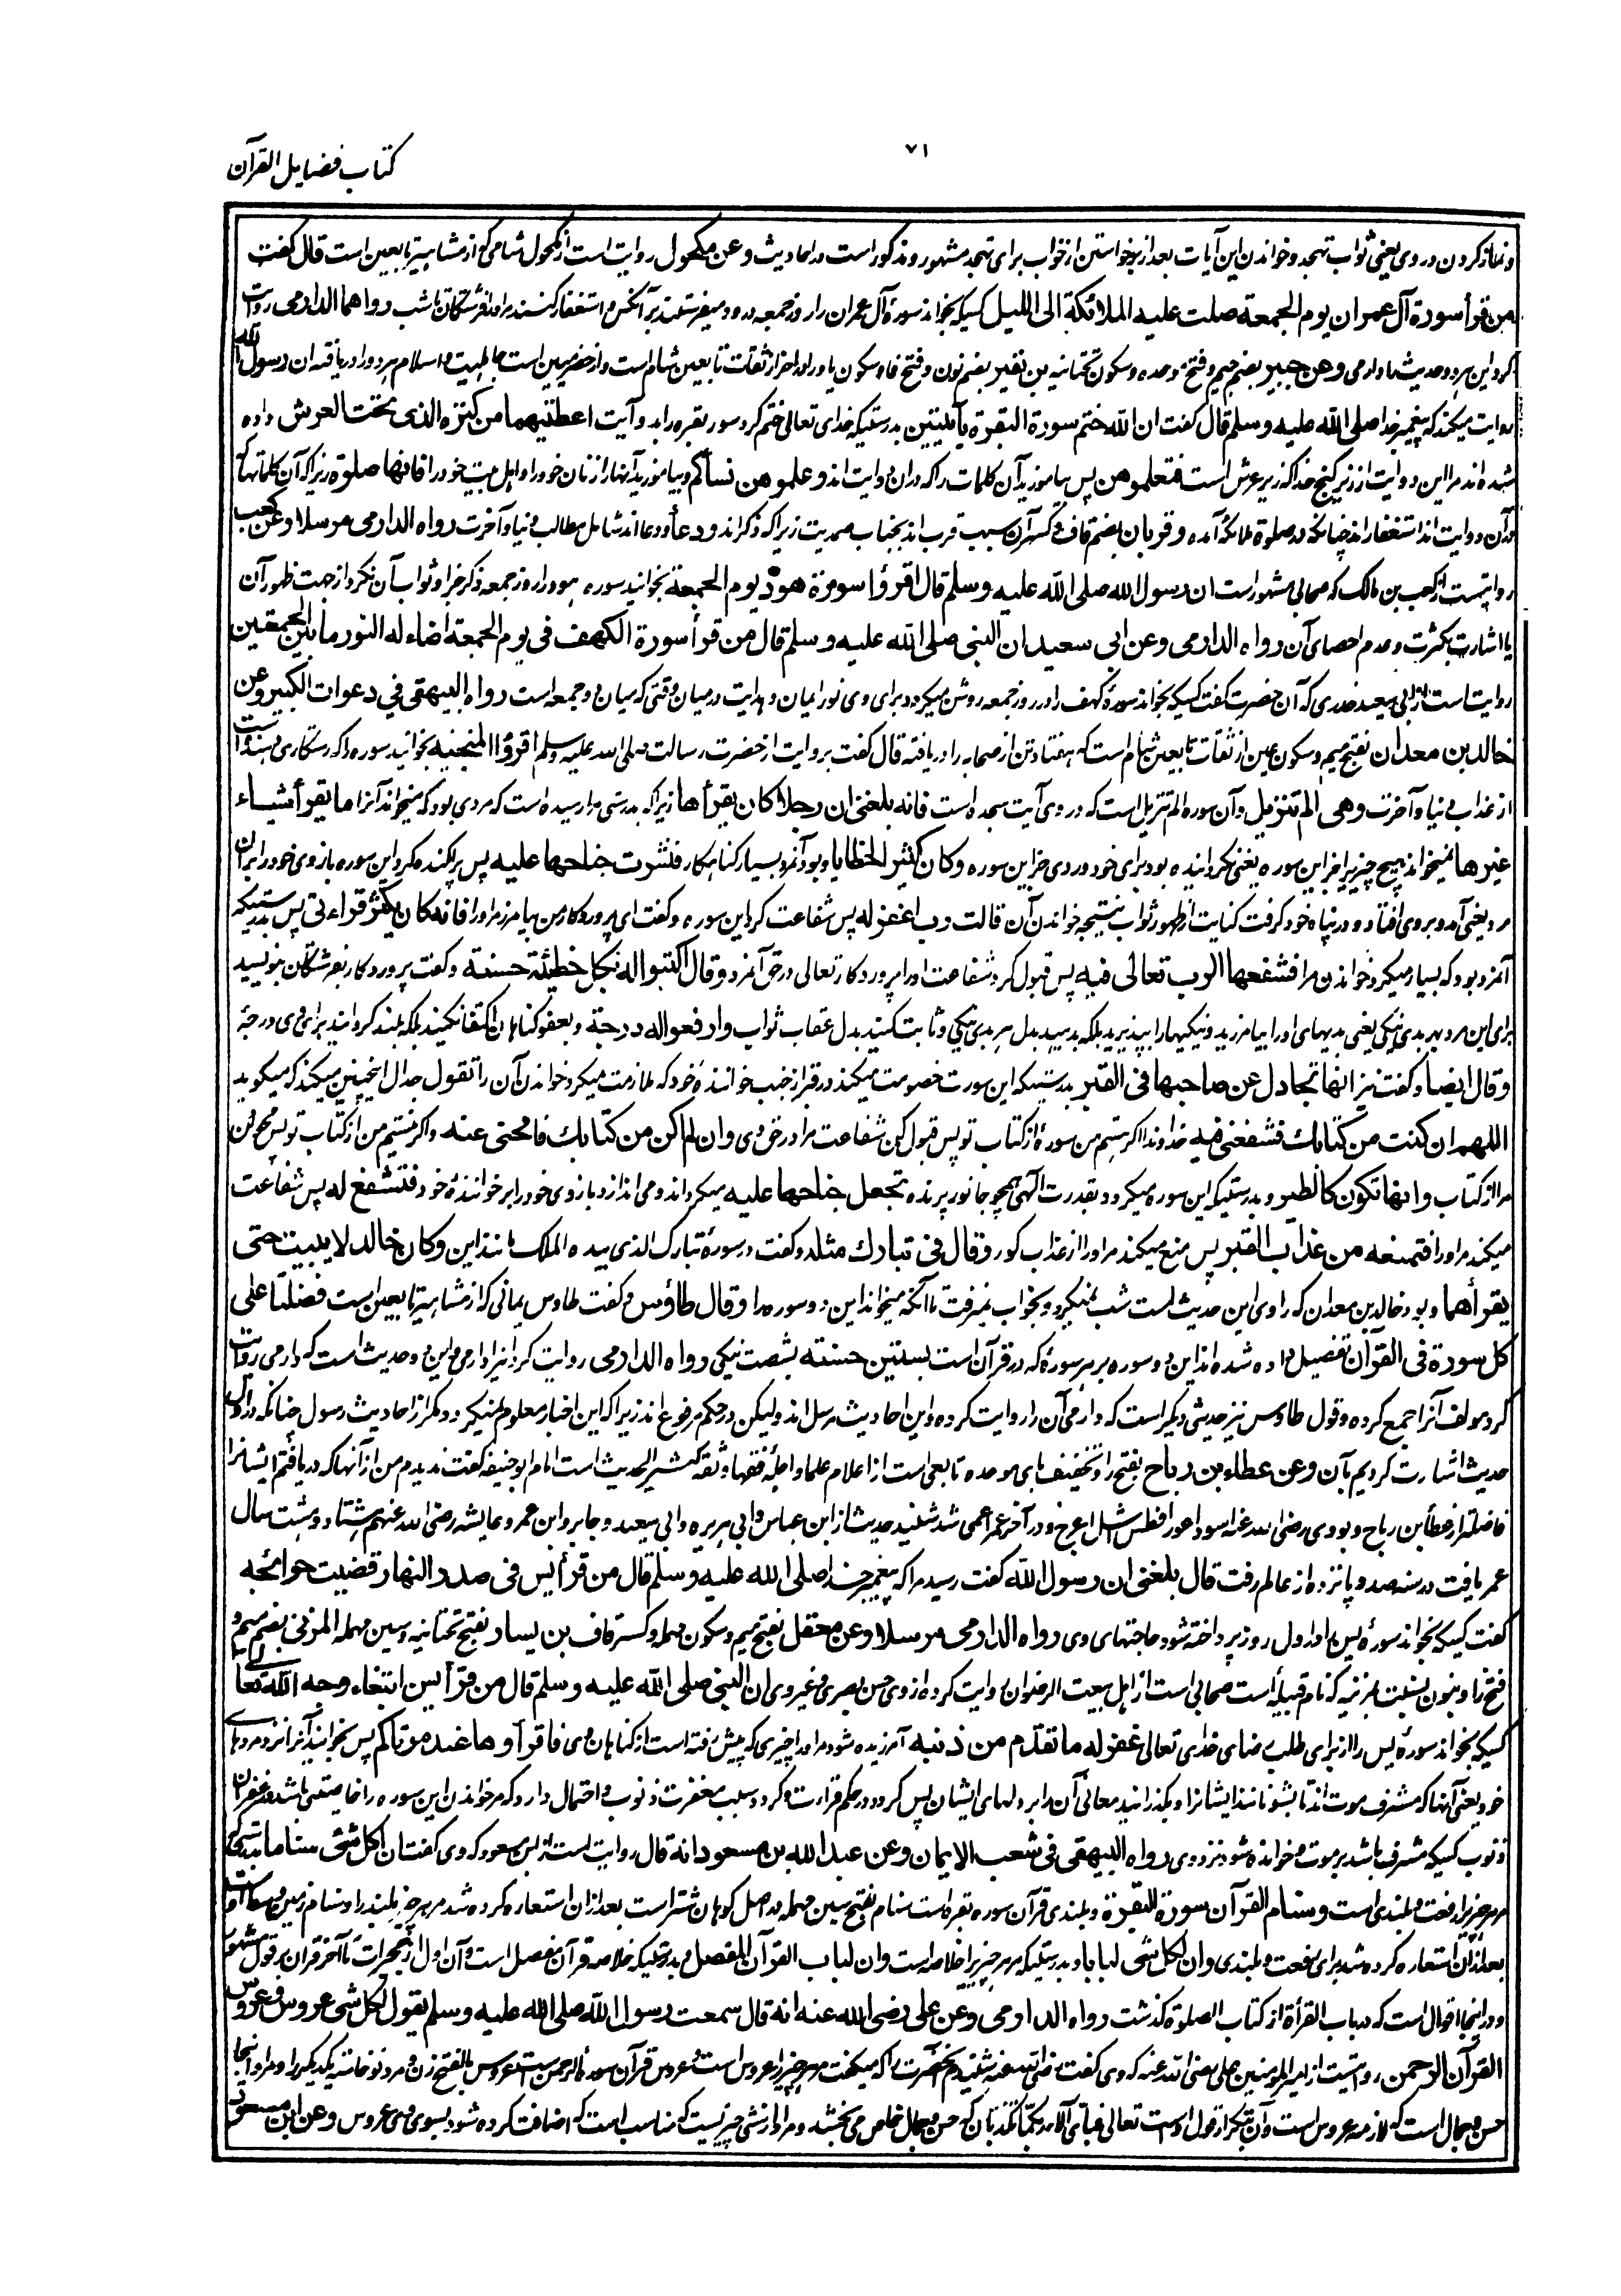 کتاب فضایل القرآن
۷۱
و نماز کردن در وی یعنی ثواب تهجد و خواندن این آیات بعد از برخواستن از خواب برای تهجد مشهور و مذکور است در احادیث وعن مکحول روایت است از مکحول شامی که از مشاهیر تابعین است قال گفت
من قرأ سورة آل عمران یوم الجمعة صلت علیه الملائکة الی اللیل کسیکه بخواند سورهٔ آل عمران را روز جمعه درود میفرستند بر آنکس و استغفار کنند مر او را فرشتگان تا شب رواهما الدارمی روایت
کرد این هر دو حدیث را دارمی وعن جبیر بضم جیم و فتح موحده و سکون تحتانیه بن نفیر بضم نون و فتح فا و سکون یا و را در آخر از ثقات تابعین شام است و از مخضرمین است جاهلیت و اسلام هر دو را دریافته ان رسول الله
روایت میکند که پیغمبر خدا صلی الله علیه وسلم قال گفت ان الله ختم سورة البقرة بآیتین بدرستیکه خدای تعالی ختم کرد سوره بقره را بدو آیت اعطیتهما من کنزه الذی تحت العرش داده
شده‌اند مرا این دو آیت از زیر گنج خدا که زیر عرش است فتعلموهن پس بیاموزید آن کلمات را که در آن دو آیت اند وعلموهن نساءکم و بیاموزید آنها را زنان خود را و اهل بیت خود را فانها صلوة زیرا که آن کلماتها که
در آن دو آیت اند استغفار اند چنانکه در صلوة ملائکه آمده وقربان بضم قاف و کسر آن سبب قرب اند بجناب صمدیت زیرا که ذکر اند ودعاء و دعا اند شامل مطالب دنیا و آخرت رواه الدارمی مرسلا وعن کعب
روایتست از کعب بن مالک که صحابی مشهور است ان رسول الله صلی الله علیه وسلم قال اقرؤا سورة هود یوم الجمعة بخوانید سوره هود را روز جمعه ذکر جزا و ثواب آن نکرد از جهت ظهور آن
یا اشارت بکثرت و عدم احصای آن رواه الدارمی وعن ابی سعید ان النبی صلی الله علیه وسلم قال من قرأ سورة الکهف فی یوم الجمعة اضاء له النور ما بین الجمعتین
روایت است از ابی سعید خدری که آن حضرت گفت کسیکه بخواند سورهٔ کهف را در روز جمعه روشن میگردد برای وی نور ایمان و هدایت در میان وقتی که میان دو جمعه است رواه البیهقی فی دعوات الکبیر وعن
خالد بن معدان بفتح میم و سکون عین از ثقات تابعین شام است که هفتاد تن از صحابه را دریافته قال گفت بروایت از حضرت رسالت صلی الله علیه وسلم اقرؤا المنجیة بخوانید سوره را که رستگاری دهنده است
از عذاب دنیا و آخرت وهی الم تنزیل و آن سوره الم تنزیل است که در وی آیت سجده است فانه بلغنی ان رجلا کان یقرأها زیرا که بدرستی مرا رسیده است که مردی بود که میخواند آنرا ما یقرأ شیاء
غیرها نمیخواند هیچ چیزی را جز این سوره یعنی نگردانیده بود برای خود وردی جز این سوره وکان کثیر الخطایا و بود آنمرد بسیار گناهکار فنشرت جناحها علیه پس پراکنده کرد این سوره بازوی خود را بر آن
مرد یعنی آمد و بروی افتاد و در پناه خود گرفت کنایت از ظهور ثواب نتیجه خواندن آن قالت رب اغفر له پس شفاعت کرد این سوره و گفت ای پروردگار من بیامرز مر او را فانه کان یکثر قراءتی پس بدرستیکه
آنمرد بود که بسیار میکرد خواندن مرا فشفعها الرب تعالی فیه پس قبول کرد شفاعت او را پروردگار تعالی در حق آنمرد وقال اکتبوا له بکل خطیئة حسنة و گفت پروردگار بفرشتگان بنویسید
برای این مرد بهر بدی نیکی یعنی بدیهای او را بیامرزید و نیکیها را بپذیرید بلکه بدهید بدل هر بدی نیکی و ثابت کنید بدل عقاب ثواب وارفعوا له درجة و بعفو گناهان اکتفا نکنید بلکه بلند گردانید برای وی درجهٔ
وقال ایضا و گفت نیز انها تجادل عن صاحبها فی القبر بدرستیکه این سورت خصومت میکند در قبر از جنب خوانندهٔ خود که ملازمت میکرد خواندن آن را تقول جدال اینچنین میکند که میگوید
اللهم ان کنت من کتابک فشفعنی فیه خداوندا اگر هستم من سورهٔ از کتاب تو پس قبول کن شفاعت مرا در حق وی وان لم اکن من کتابک فامحنی عنه و اگر نیستم من از کتاب تو پس محو کن
مرا از کتاب وانها تکون کالطیر و بدرستیکه این سوره میگردد بقدرت الهی همچو جانور پرنده تجعل جناحها علیه میگرداند و می اندازد بازوی خود را بر خوانندهٔ خود فتشفع له پس شفاعت
میکند مر او را فتمنعه من عذاب القبر پس منع میکند مر او را از عذاب گور وقال فی تبارک مثله و گفت در سورهٔ تبارک الذی بیده الملک مانند این وکان خالد لا یبیت حتی
یقرأهما و بود خالد بن معدان که راوی این حدیث است شب نمیکرد و بخواب نمیرفت تا آنکه میخواند این دو سوره را وقال طاؤس و گفت طاوس یمانی که از مشاهیر تابعین است فضلتا علی
کل سورة فی القرآن تفضیل داده شده‌اند این دو سوره بر هر سورهٔ که در قرآن است بستین حسنة بشصت نیکی رواه الدارمی روایت کرد نیز دارمی و این دو حدیث است که دارمی روایت
کرد مولف آنرا جمع کرده و قول طاوس نیز حدیثی دیگر است که دارمی آن را روایت کرده و این احادیث مرسل اند ولیکن در حکم مرفوع اند زیرا که این اخبار معلوم نمیگردد مگر از احادیث رسول چنانکه در اول
حدیث اشارت کردیم بآن وعن عطاء بن رباح بفتح را و تخفیف بای موحده تابعی است از اعلام علما و اجلهٔ فقها و ثقه کثیر الحدیث است امام ابوحنیفه گفت ندیدم من از آنها که دریافتم ایشانرا
فاضلتر از عطاء بن رباح و بود وی رضی الله عنه اسود اعور افطس اشل اعرج و در آخر عمر اعمی شد شنید حدیث از ابن عباس و ابی هریره و ابی سعید و جابر و ابن عمر و عایشه رضی الله عنهم هشتاد و هشت سال
عمر یافت در سنه صد و پانزده از عالم رفت قال بلغنی ان رسول الله گفت رسید مرا که پیغمبر خدا صلی الله علیه وسلم قال من قرأ یس فی صدر النهار قضیت حوائجه
گفت کسیکه بخواند سورهٔ یس را در اول روز پرداخته شود حاجتهای وی رواه الدارمی مرسلا وعن معقل بفتح میم و سکون مهمله و کسر قاف بن یسار بفتح تحتانیه و سین مهمله المزنی بضم میم و
فتح زا و بنون نسبت بمزنیه که نام قبیله است صحابی است از اهل بیعت الرضوان روایت کرده از وی حسن بصری و غیر وی ان النبی صلی الله علیه وسلم قال من قرأ یس ابتغاء وجه الله تعالی
کسیکه بخواند سورهٔ یس را از برای طلب رضای خدای تعالی غفر له ما تقدم من ذنبه آمرزیده شود مر او را چیزی که پیش رفته است از گناهان وی فاقرأوها عند موتاکم پس بخوانید آنرا نزد مردهای
خود یعنی آنها که مشرف بموت اند تا بشنوانند ایشانرا و بگذرانید معانی آن را بر دلهای ایشان پس گردد در حکم قراءت و گردد سبب مغفرت ذنوب و احتمال دارد که مر خواندن این سوره را خاصیتی باشد در غفران
ذنوب کسیکه مشرف باشد بر موت و خوانده شود نزد وی رواه البیهقی فی شعب الایمان وعن عبد الله بن مسعود انه قال روایت است از ابن مسعود که وی گفت ان لکل شئ سناما بدرستیکه
مر هر چیز را رفعت و بلندی است وسنام القرآن سورة البقرة و بلندی قرآن سوره بقره است سنام بفتح سین مهمله در اصل کوهان شتر است بعد از آن استعاره کرده شد مر هر چیز بلند را و سنام زمین وسط آن
بعد از آن استعاره کرده شد برای رفعت و بلندی وان لکل شی لبابا و بدرستیکه مر هر چیز را خلاصه است وان لباب القرآن المفصل و بدرستیکه خلاصه قرآن مفصل است و آن اول از حجرات تا آخر قرآن بر قول مشهور
و در اینجا اقوال است که در باب القرأة از کتاب الصلوة گذشت رواه الدارمی وعن علی رضی الله عنه انه قال سمعت رسول الله صلی الله علیه وسلم یقول لکل شی عروس وعروس
القرآن الرحمن روایتست از امیر المومنین علی رضی الله عنه که وی گفت رضی الله عنه شنیدم آنحضرت را که میگفت مر هر چیز را عروس است و عروس قرآن سورهٔ الرحمن است عروس بالفتح زن و مرد نو خاسته یکدیگر را و مراد اینجا
حسن و جمال است که لازمه عروس است و آن بتکرار قول اوست تعالی فبای آلاء ربکما تکذبان که حسن و جمال خاص می بخشد و مراد از شی چیزیست که مناسب است که اضافت کرده شود بسوی وی عروس وعن ابن مسعود